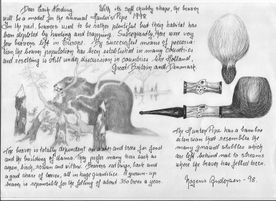 Dear Erik Nording With its soft chubby shape, the beaver
will be a model for the annual Hunter's Pipe 1998.
In the past, beavers used to be rather popular but their habitat has
been depleted by hunting and trapping. Subsequently, there were very
few beavers left in Europe. By successful means of preserva-
tion the beaver population has been established in many countries
and resettling is still under discussion in countries like Holland,
Great Britain and Denmark.
The Hunter Pipe has a bamboo
extension that resembles the
many gnawed stubbles which
are left behind next to streams
where the beaver has felled trees.
The beaver is totally dependent on water and trees for food
and its building of dams. They prefer many trees such as
aspen, birch, and willow. Beavers eat twigs, bark and
a good share of leaves, all in huge quantities. A grown-up
beaver is responsible for the felling of about 300 trees a year.
Mogens Andersen - 98.